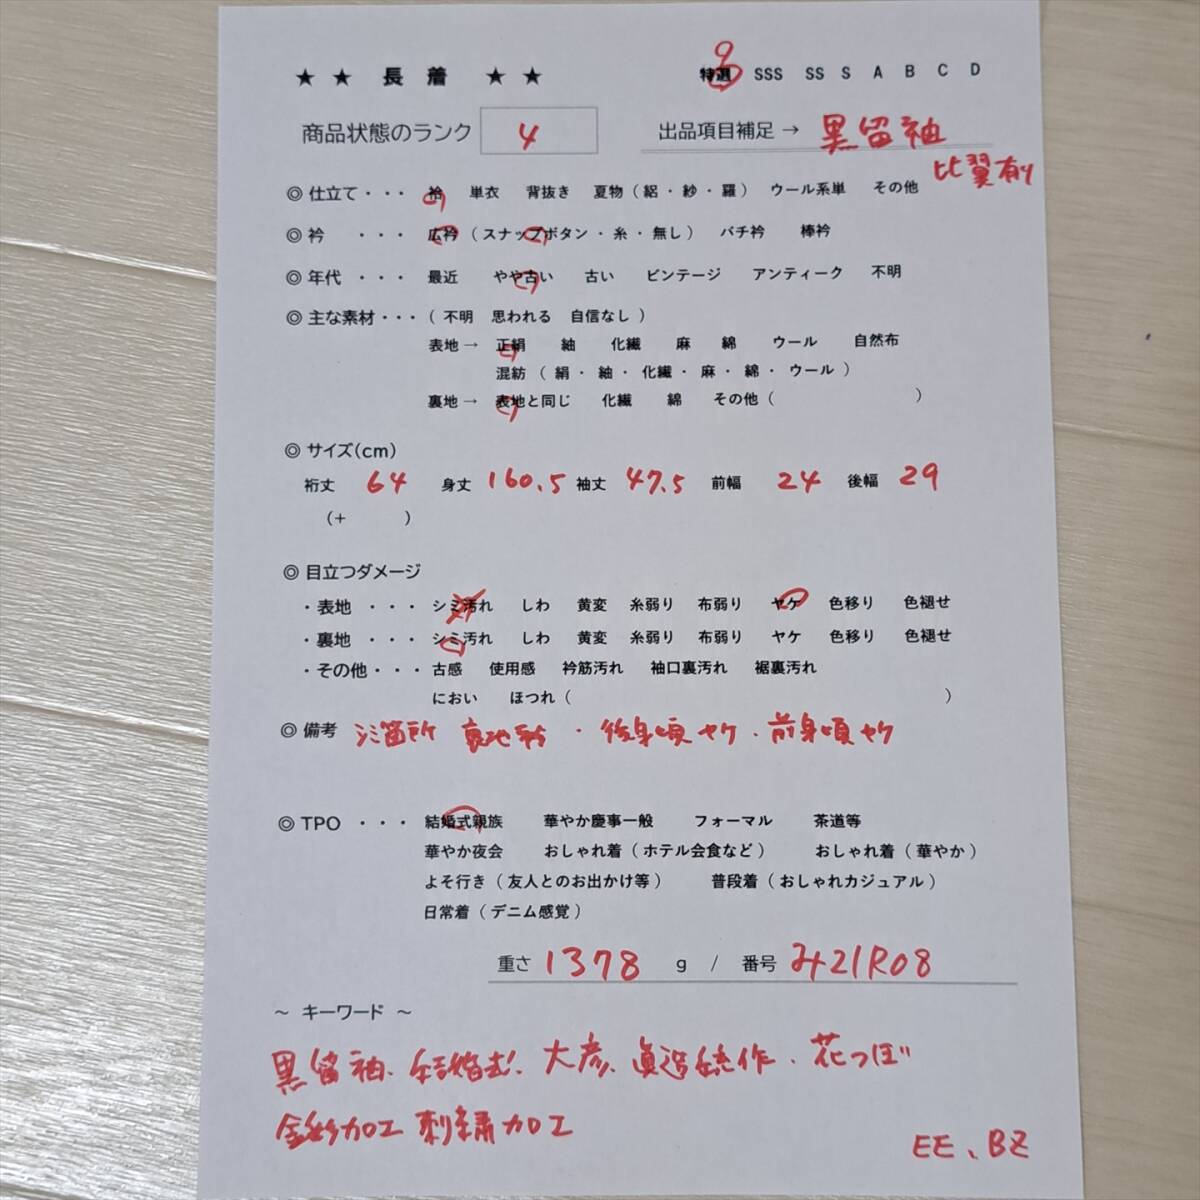 ★ ★ 長 着 ★ ★ 特選 SSS SS S A B C D
商品状態のランク 4 出品項目補足 → 黒留袖
比翼有り
◎ 仕立て・・・ 袷 単衣 背抜き 夏物 ( 絽 ・ 紗 ・ 羅 ) ウール系単 その他
◎ 衿 ・・・ 広衿 ( スナップボタン ・ 糸 ・ 無し ) バチ衿 棒衿
◎ 年代 ・・・ 最近 やや古い 古い ビンテージ アンティーク 不明
◎ 主な素材・・・ ( 不明 思われる 自信なし )
表地 → 正絹 紬 化繊 麻 綿 ウール 自然布
混紡 ( 絹 ・ 紬 ・ 化繊 ・ 麻 ・ 綿 ・ ウール )
裏地 → 表地と同じ 化繊 綿 その他 ( )
◎ サイズ(cm)
裄丈 64 身丈 160.5 袖丈 47.5 前幅 24 後幅 29
(+ )
◎ 目立つダメージ
・表地 ・・・ シミ汚れ しわ 黄変 糸弱り 布弱り ヤケ 色移り 色褪せ
・裏地 ・・・ シミ汚れ しわ 黄変 糸弱り 布弱り ヤケ 色移り 色褪せ
・その他・・・ 古感 使用感 衿筋汚れ 袖口裏汚れ 裾裏汚れ
におい ほつれ ( )
◎ 備考 シミ箇所 裏地 ・ 後身頃ヤケ ・ 前身頃ヤケ
◎ TPO ・・・ 結婚式親族 華やか慶事一般 フォーマル 茶道等
華やか夜会 おしゃれ着 ( ホテル会食など ) おしゃれ着 ( 華やか )
よそ行き ( 友人とのお出かけ等 ) 普段着 ( おしゃれカジュアル )
日常着 ( デニム感覚 )
重さ 1378 g / 番号 み21R08
～ キーワード ～
黒留袖、結婚式、大彦、作、花つぼ
金彩加工 刺繍加工
EE、BZ